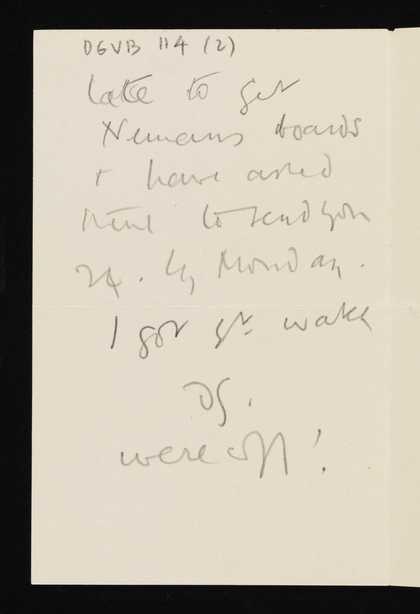 DGVB 114 (2)
late to get
Newmans boards
& have asked
him to send you
24. by Monday.
I got yr. watch
DG.
were off!